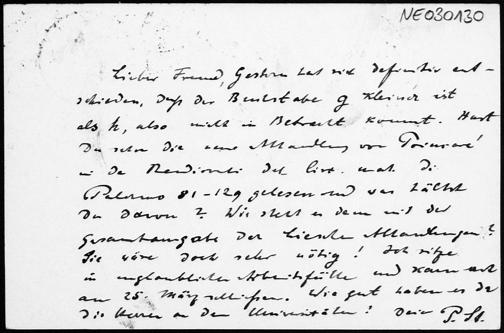 NE030130
Lieber Freund, Gestern hat sich definitiv ent-
schieden, daß der Buchstabe g kleiner ist
als h, also nicht in Betracht kommt. Hast
Du schon die neue Abhandlung von Poincaré
in de Rendiconti del Circ. mat. di
Palermo 81-129 gelesen und was hältst
Du davon? Wie steht es denn mit der
Gesamtausgabe der Lieschen Abhandlungen?
Sie wäre doch sehr nötig! Ich sitze
in unglaublicher Arbeitsfülle und kann erst
am 25 März schließen. Wie gut haben es da
die Herren an den Universitäten! Dein P. St.